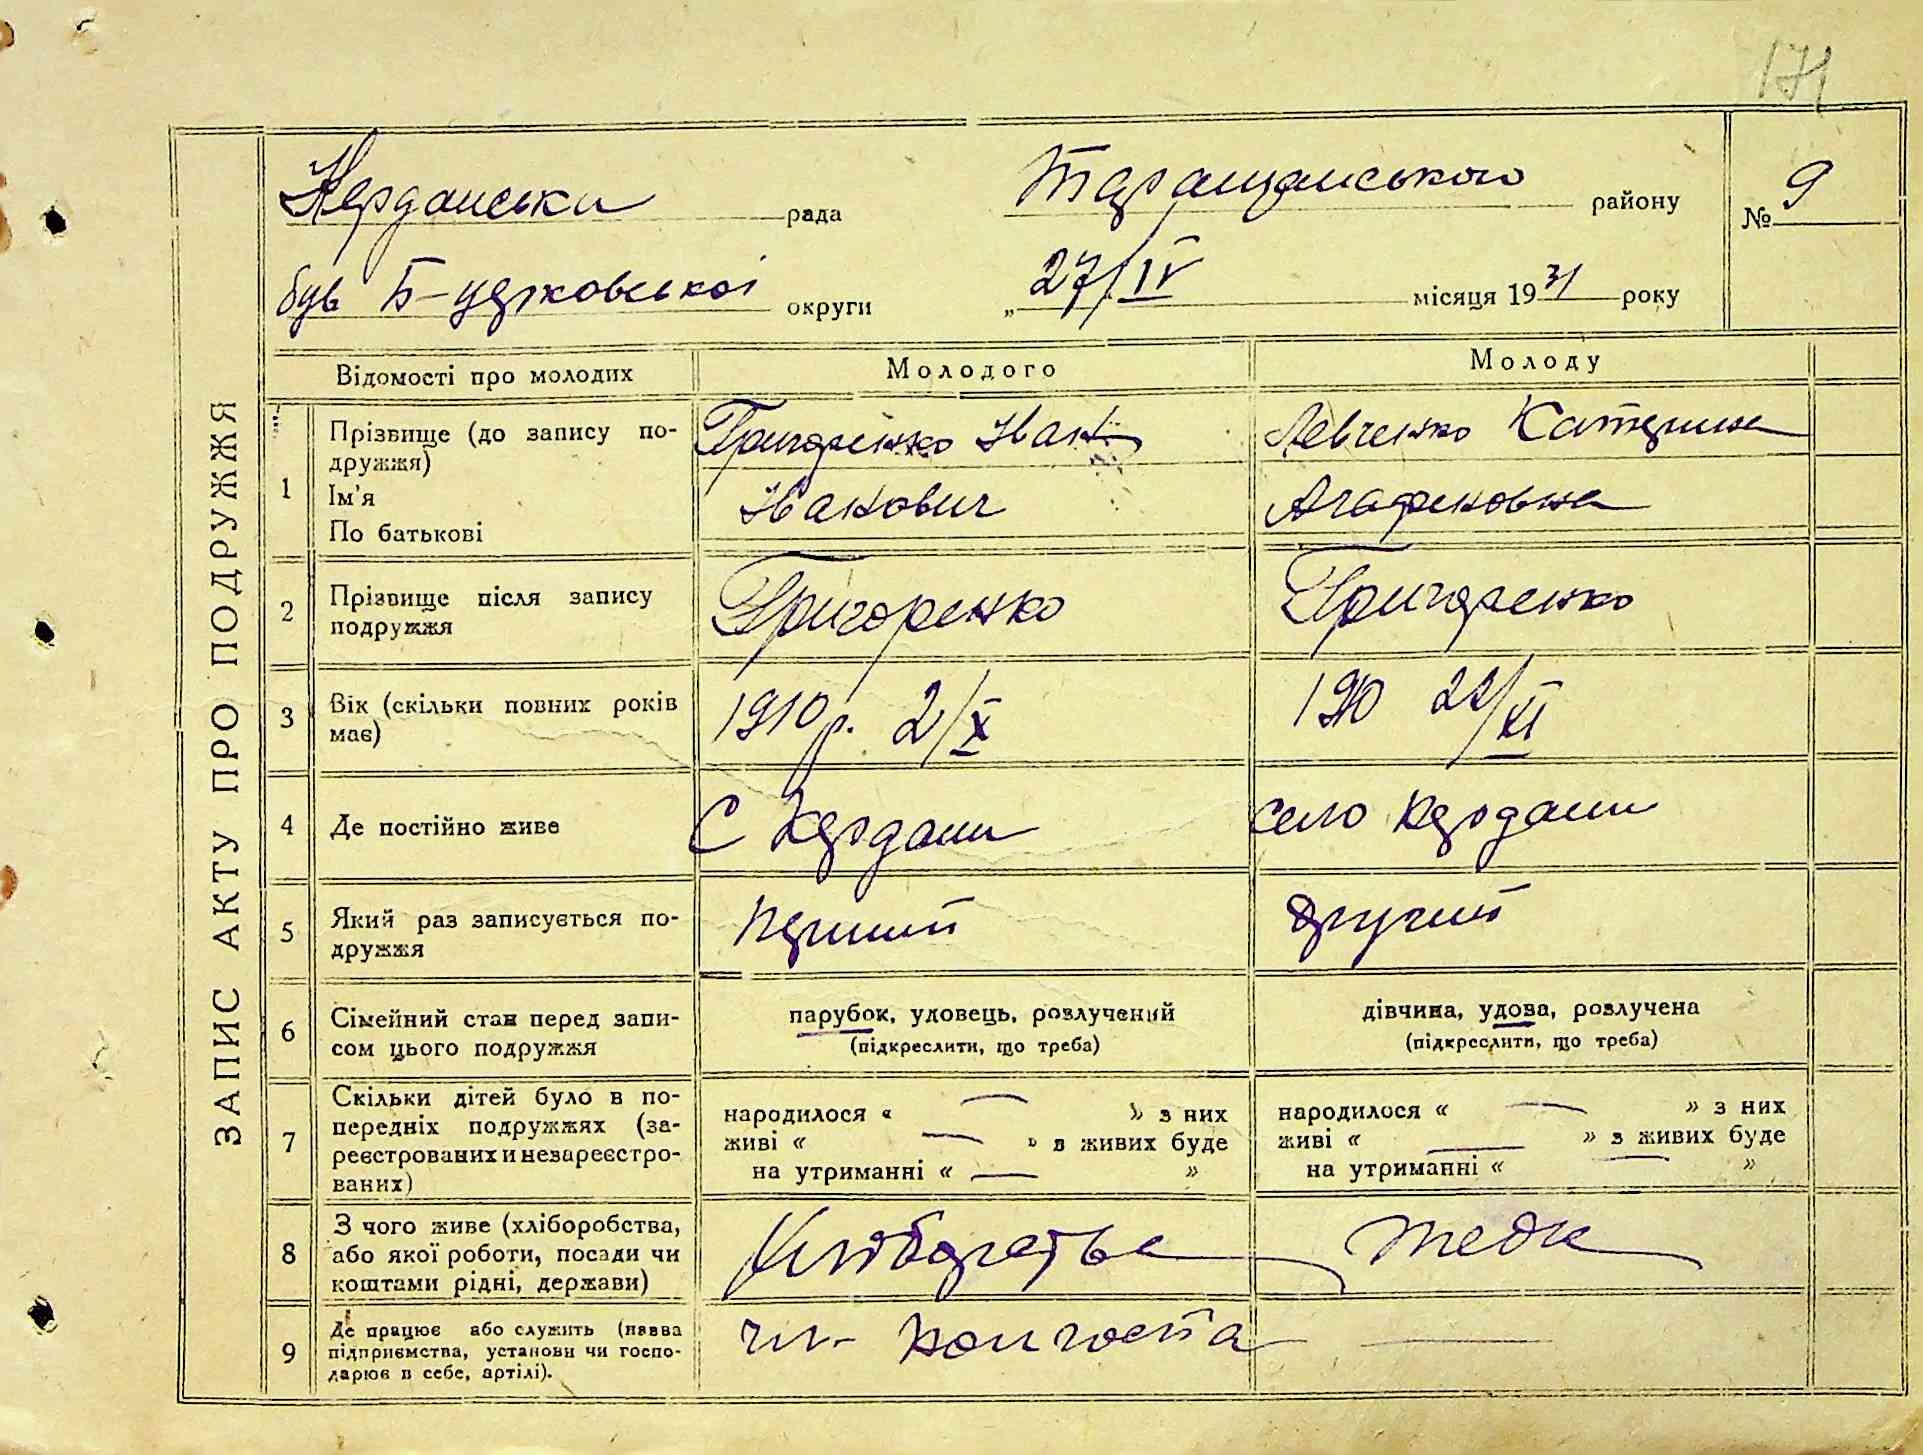 171
ЗАПИС АКТУ ПРО ПОДРУЖЖЯ
Керданська рада Таращанського району № 9
був Б-церковської округи „ 27/IV місяця 1931 року
Відомості про молодих Молодого Молоду
1 Прізвище (до запису по-
дружжя)
Ім'я
По батькові
Григоренко Іван
Іванович
Левченко Катерина
Агафеновна
2 Прізвище після запису
подружжя
Григоренко
Григоренко
3 Вік (скільки повних років
має)
1910 р. 2/X
1910 22/XI
4 Де постійно живе
С Кердани
село Кердани
5 Який раз записується по-
дружжя
перший
другий
6 Сімейний стан перед запи-
сом цього подружжя
парубок, удовець, розлучений
(підкреслити, що треба)
дівчина, удова, розлучена
(підкреслити, що треба)
7 Скільки дітей було в по-
передніх подружжях (за-
реєстрованих и незареєстро-
ваних)
народилося « — » з них
живі « — » в живих буде
на утриманні « — »
народилося « — » з них
живі « — » з живих буде
на утриманні « — »
8 З чого живе (хліборобства,
або якої роботи, посади чи
коштами рідні, держави)
Хліборобства
теж
9 Де працює або служить (назва
підприємства, установи чи госпо-
дарює в себе, артілі).
чл. колгоспа
—